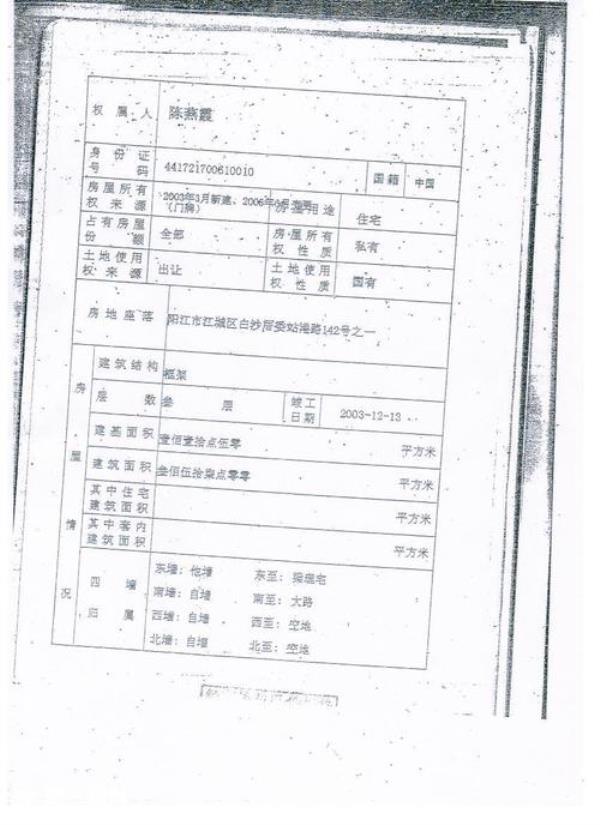 权属人 陈燕霞
身份证
号码 441721700610010 国籍 中国
房屋所有
权来源 2003年3月新建、2006年 房屋用途 住宅
(门牌)
占有房屋
份额 全部 房屋所有
权性质 私有
土地使用
权来源 出让 土地使用
权性质 国有
房地座落 阳江市江城区白沙居委站港路142号之一
房屋情况
建筑结构 框架
层数 叁层 竣工
日期 2003-12-13
建基面积 壹佰壹拾点伍零 平方米
建筑面积 叁佰伍拾柒点零零 平方米
其中住宅
建筑面积 平方米
其中套内
建筑面积 平方米
四墙
归属
东墙：他墙 东至：梁 宅
南墙：自墙 南至：大路
西墙：自墙 西至：空地
北墙：自墙 北至：空地